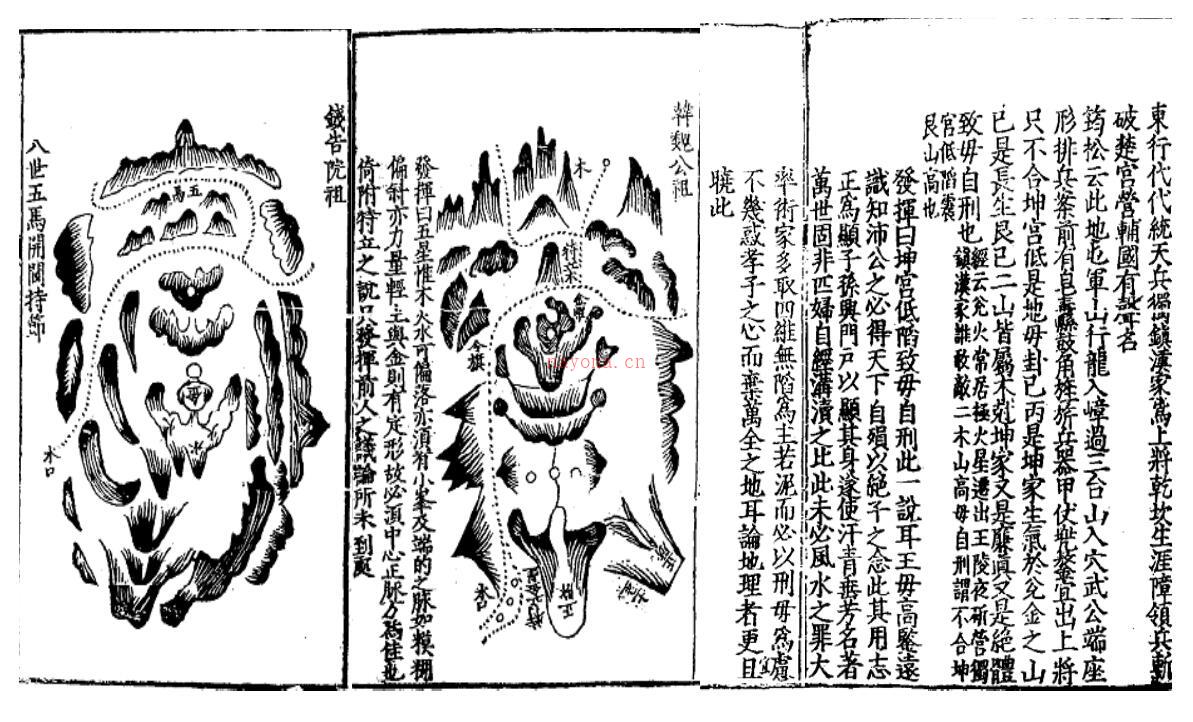 東行代代統天兵獨鎮漢家為上將乾坎生涯障領兵斬
破楚宮營輔國有聲名
筠松云此地屯軍山行龍入嶂過三台山入穴武公端座
形排兵案前有皂纛鼓角旌旂兵器甲伏無鑒宜出上將
只不合坤宮低是地毋卦巳丙是坤家生氣於兌金之山
巳是長生艮巳二山皆屬木剋坤家又是廉眞又是絕體
致毋自刑也經云兊火常居極火星遷出王陵夜斫營獨
鎮漢家誰敢敵二木山高毋自刑謂不合坤
宮低䧟襄
艮山高也
發揮曰坤宮低䧟致毋自刑此一說耳王毋高鑒遠
識知沛公之必得天下自殞以絕子之念此其用志
正為顯子孫興門戶以顯其身遂使汗青垂芳名著
萬世固非匹婦自經溝瀆之比此未必風水之罪大
率術家多取四維無䧟為主若泥而必以刑毋為慮
不幾惑孝子之心而棄萬全之地耳論地理者更且
曉此
韓魏公祖
木
特案
金旗
水口
正
發揮曰五星惟木火水可偏落亦須有小峯及端的之脉如糢糊
偏斜亦力量輕土與金則有定形故必頂中心正脉乃為佳也
倚附特立之說只發揮前人之議論所未到處
錢告院祖
五馬
水口
八世五馬開閫持節
nayona.cn